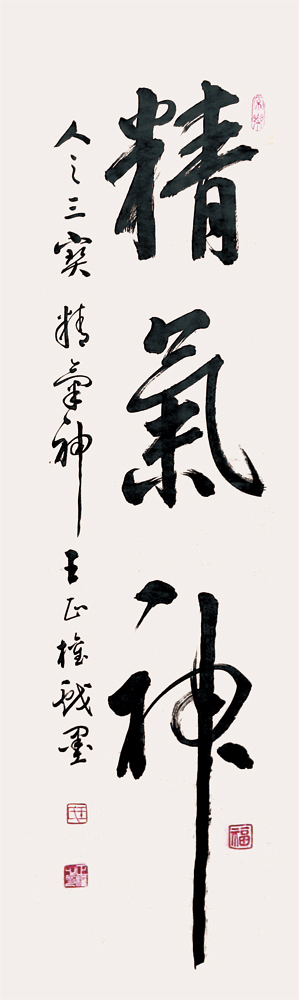 精氣神
人之三寶 精氣神 王正權戲墨
福